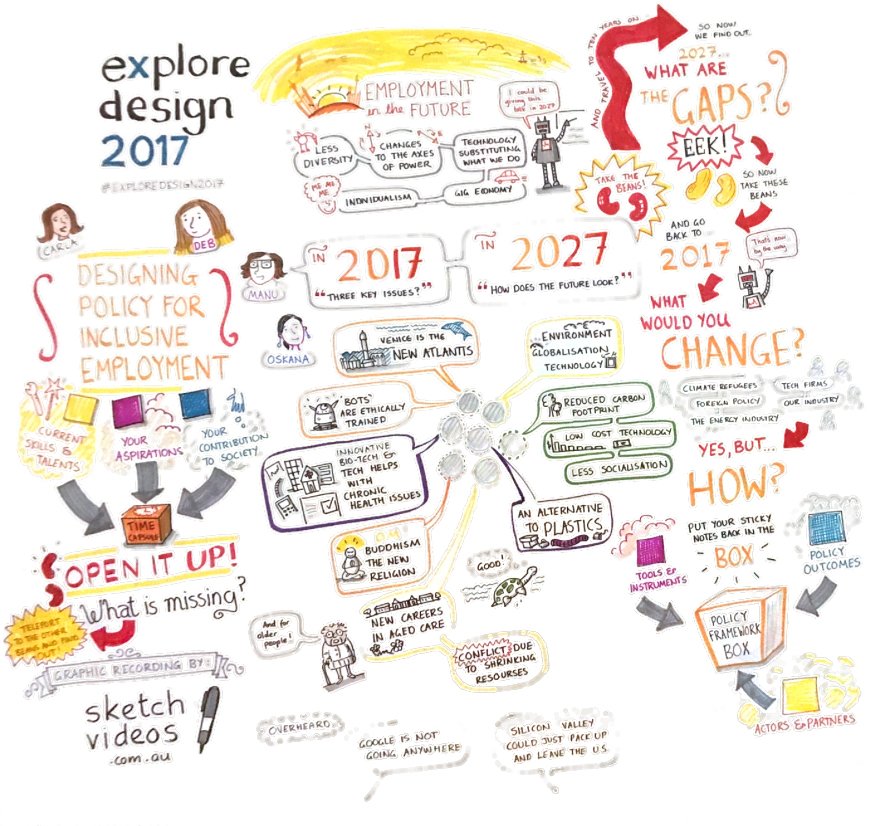 explore
design
2017
#EXPLOREDESIGN2017
CARLA
DEB
DESIGNING
POLICY FOR
INCLUSIVE
EMPLOYMENT
CURRENT
SKILLS &
TALENTS
YOUR
ASPIRATIONS
YOUR
CONTRIBUTION
TO SOCIETY
TIME
CAPSULE
OPEN IT UP!
What is missing?
TELEPORT
TO THE OTHER
BEANS AND FIND
OUT!
GRAPHIC RECORDING BY:
sketch
videos
.com.au
EMPLOYMENT
in the FUTURE
I could be
giving this
talk in 2027
LESS
DIVERSITY
CHANGES
TO THE AXES
OF POWER
TECHNOLOGY
SUBSTITUTING
WHAT WE DO
ME ME
ME
INDIVIDUALISM
GIG ECONOMY
MANU
OSKANA
IN
2017
"THREE KEY ISSUES?"
IN
2027
"HOW DOES THE FUTURE LOOK?"
VENICE IS THE
NEW ATLANTIS
ENVIRONMENT
GLOBALISATION
TECHNOLOGY
BOTS
ARE ETHICALLY
TRAINED
REDUCED CARBON
FOOTPRINT
LOW COST TECHNOLOGY
LESS SOCIALISATION
INNOVATIVE
BIO-TECH &
TECH HELPS
WITH
CHRONIC
HEALTH ISSUES
AN ALTERNATIVE
TO PLASTICS
OM
BUDDHISM
THE NEW
RELIGION
GOOD!
NEW CAREERS
IN AGED CARE
And for
older
people!
CONFLICT DUE
TO SHRINKING
RESOURSES
OVERHEARD
GOOGLE IS NOT
GOING ANYWHERE
SILICON VALLEY
COULD JUST PACK UP
AND LEAVE THE U.S.
TAKE THE
BEANS!
AND TRAVEL TO TEN YEARS ON
SO NOW
WE FIND OUT
2027...
WHAT ARE
THE GAPS?
EEK!
SO NOW
TAKE THESE
BEANS
AND GO
BACK TO
2017
That's now,
by the way
WHAT
WOULD YOU
CHANGE?
CLIMATE REFUGEES
TECH FIRMS
FOREIGN POLICY
OUR INDUSTRY
THE ENERGY INDUSTRY
YES, BUT...
HOW?
PUT YOUR STICKY
NOTES BACK IN THE
BOX
TOOLS &
INSTRUMENTS
POLICY
OUTCOMES
POLICY
FRAMEWORK
BOX
ACTORS & PARTNERS